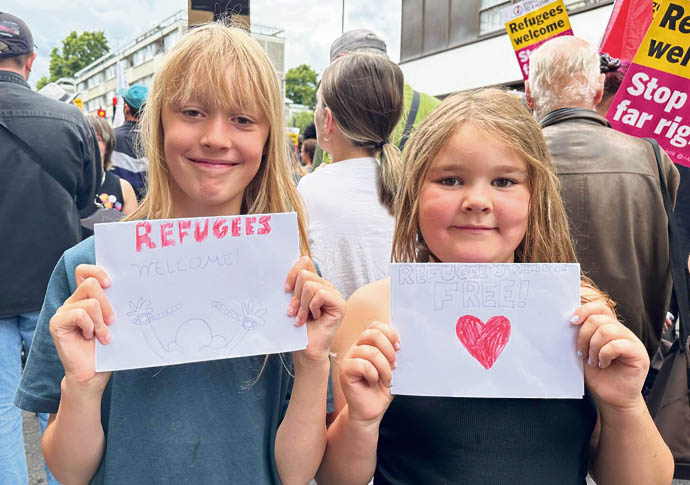 REFUGEES
WELCOME!
REFUGEES
FREE!
Refugees
welcome
Refugees
welcome
Stop
far rig